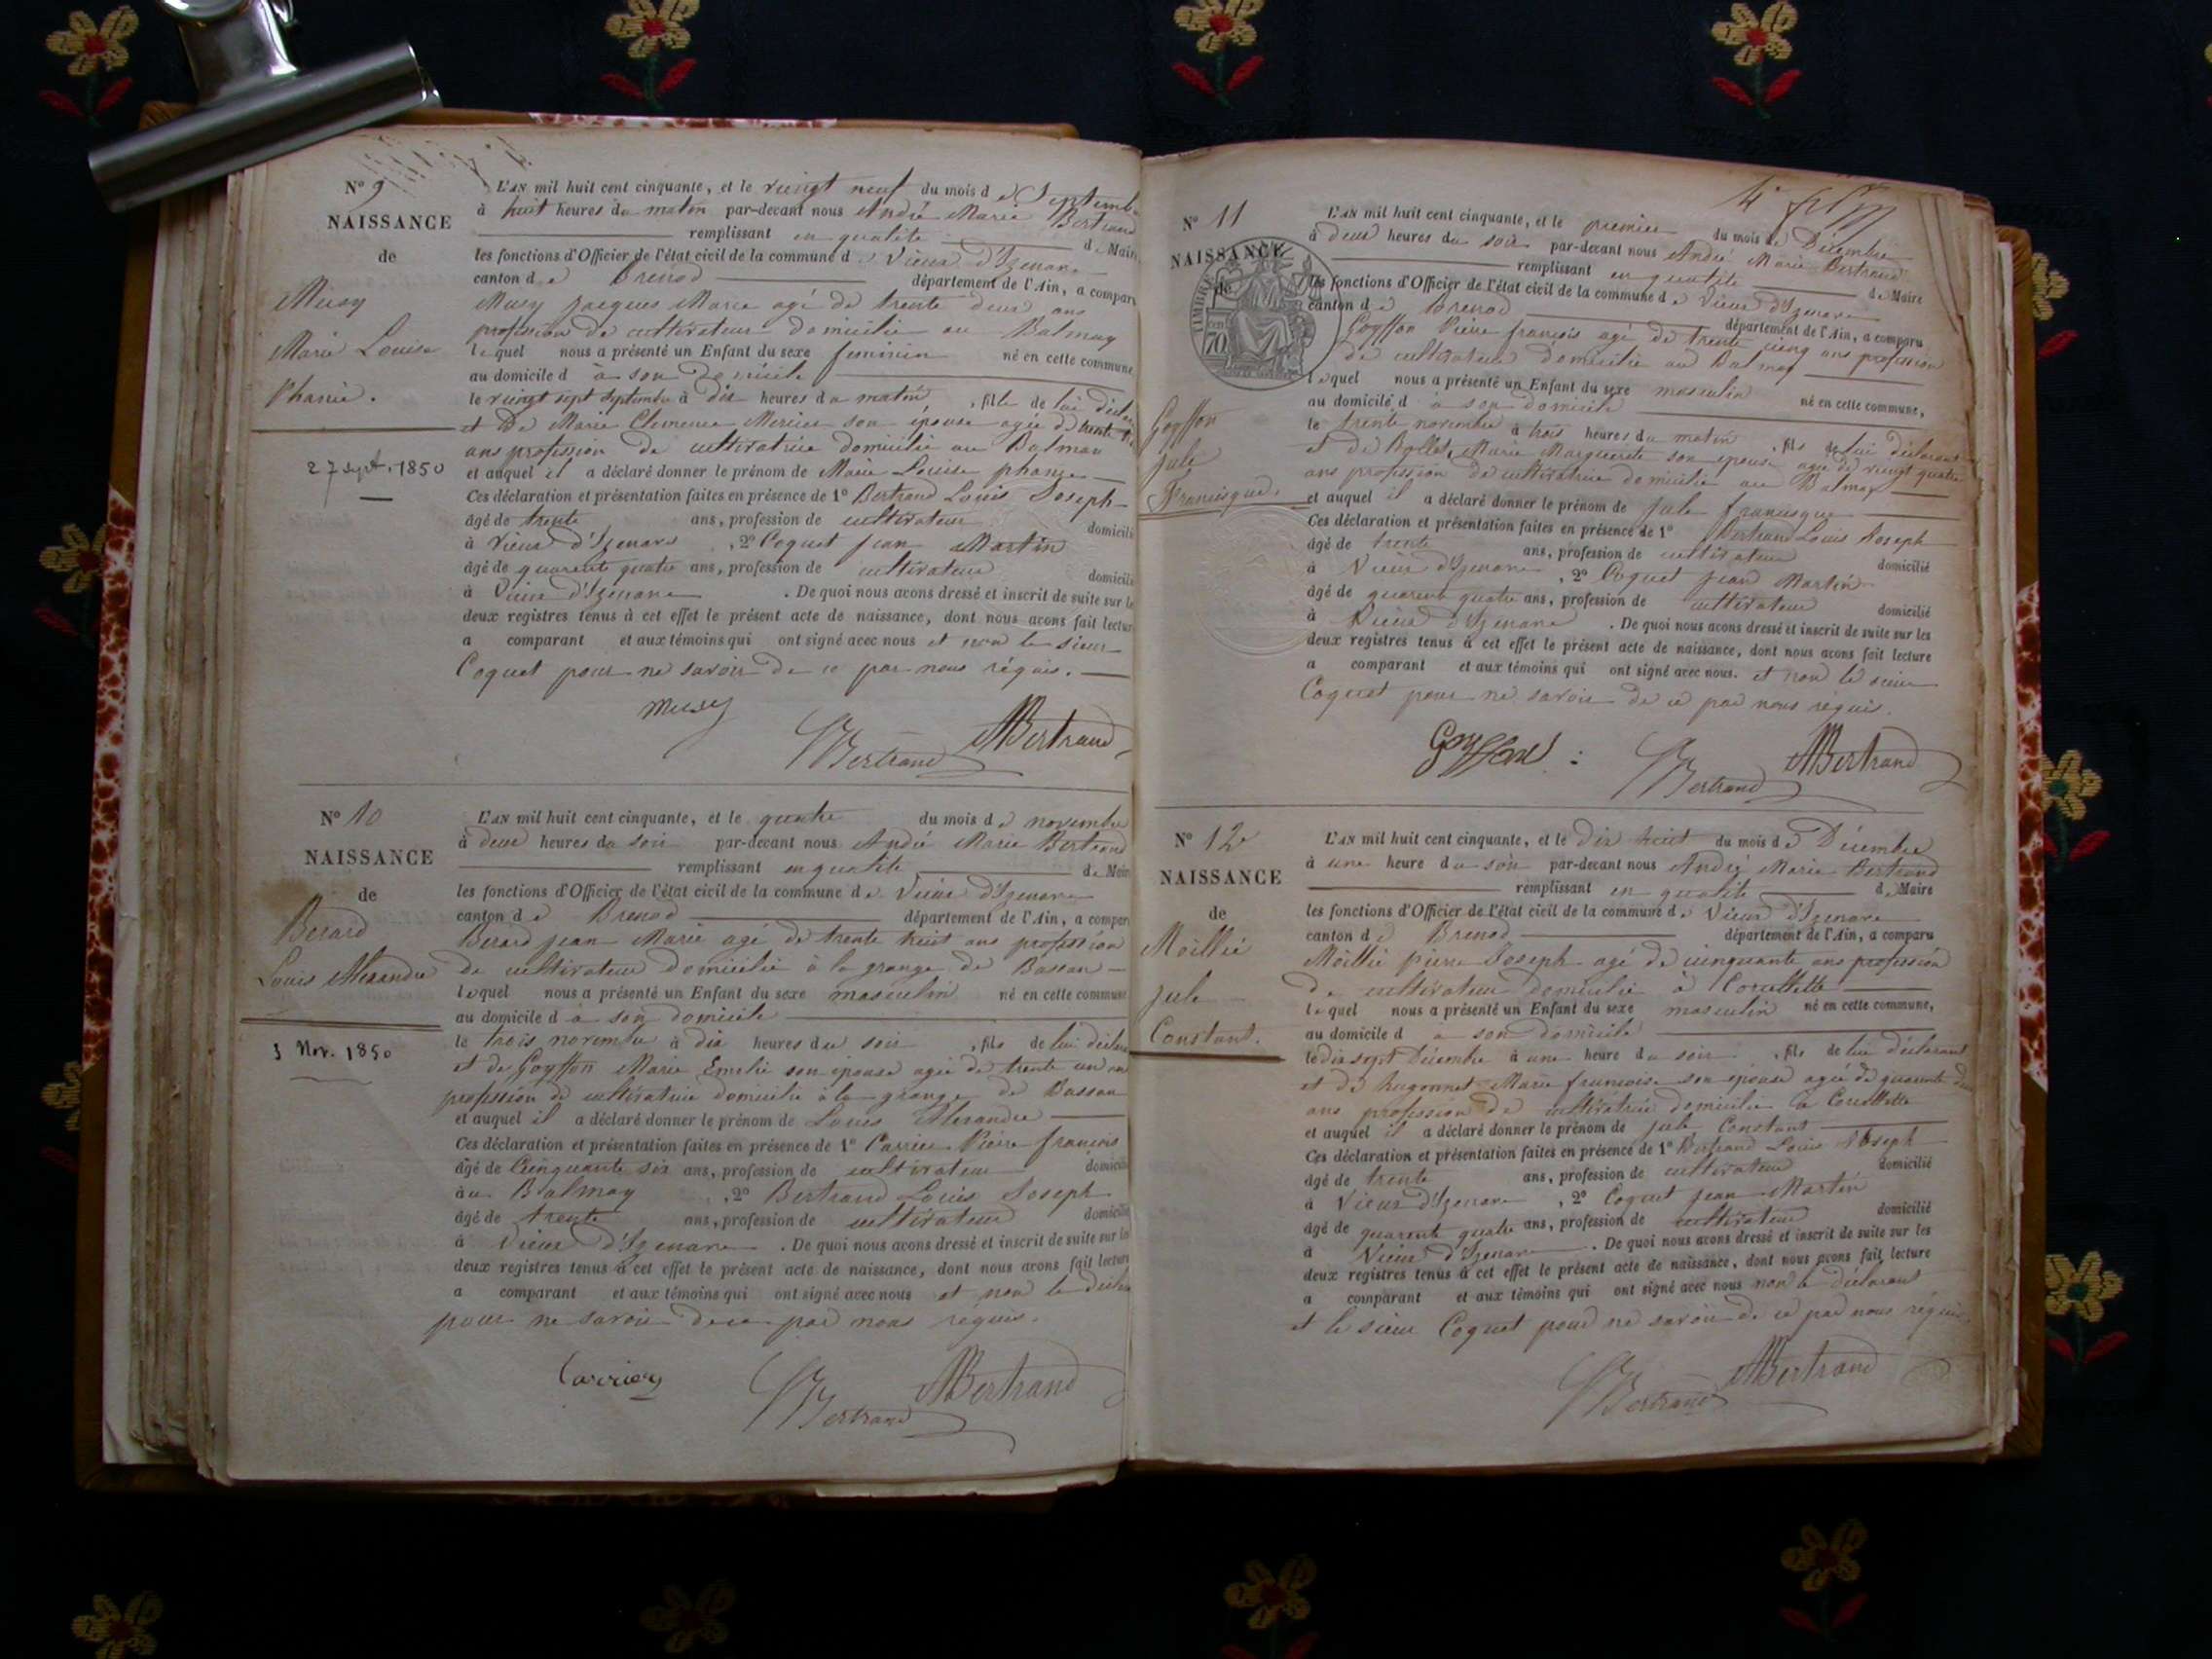 N° 9
NAISSANCE
de
Musy
Marie Louise
Phanie.
27 sept. 1850
L'AN mil huit cent cinquante, et le vingt neuf du mois de Septemb
à huit heures du matin par-devant nous André Marie Bertrand
remplissant en qualité de Mair
les fonctions d'Officier de l'état civil de la commune de Vieux d'Izenave
canton de Brenod département de l'Ain, a compar
Musy Jacques Marie agé de trente deux ans
profession de cultivateur domicilié au Balmay
lequel nous a présenté un Enfant du sexe feminin né en cette commune
au domicile d à son domicile
le vingt sept Septembre à dix heures du matin, fille de lui décla
et de Marie Clemence Mercier son épouse agée de trente
ans profession de cultivatrice domicilié au Balmay
et auquel il a déclaré donner le prénom de Marie Louise phanie
Ces déclaration et présentation faites en présence de 1° Bertrand Louis Joseph
âgé de trente ans, profession de cultivateur domicilié
à Vieux d'Izenave, 2° Coquet jean Martin
âgé de quarente quatre ans, profession de cultivateur domicilié
à Vieux d'Izenave. De quoi nous avons dressé et inscrit de suite sur le
deux registres tenus à cet effet le présent acte de naissance, dont nous avons fait lectur
a comparant et aux témoins qui ont signé avec nous et non le sieur
Coquet pour ne savoir de ce par nous réquis.
musy
Bertrand
AMBertrand
N° 10
NAISSANCE
de
Berard
Louis Alexandre
3 Nov. 1850
L'AN mil huit cent cinquante, et le quatre du mois de novembre
à deux heures du soir par-devant nous André Marie Bertrand
remplissant en qualité de Mair
les fonctions d'Officier de l'état civil de la commune de Vieux d'Izenave
canton de Brenod département de l'Ain, a compar
Berard jean Marie agé de trente huit ans profession
de cultivateur domicilié à la grange de Bassan
lequel nous a présenté un Enfant du sexe masculin né en cette commune
au domicile d à son domicile
le trois novembre à dix heures du soir, fils de lui déclar
et de Goyffon Marie Emelie son épouse agée de trente un an
profession de cultivatrice domicilié à la grange de Bassan
et auquel il a déclaré donner le prénom de Louis Alexandre
Ces déclaration et présentation faites en présence de 1° Carrier Pierre françois
âgé de Cinquante six ans, profession de cultivateur domicilié
au Balmay, 2° Bertrand Louis Joseph
âgé de trente ans, profession de cultivateur domicilié
à Vieux d'Izenave. De quoi nous avons dressé et inscrit de suite sur les
deux registres tenus à cet effet le présent acte de naissance, dont nous avons fait lecture
a comparant et aux témoins qui ont signé avec nous et non le déclar
pour ne savoir de ce par nous réquis.
Carrier
Bertrand
AMBertrand
N° 11
NAISSANCE
de
TIMBRE
70
Goyffon
jule
Francisque.
L'AN mil huit cent cinquante, et le premier du mois de Décembre
à deux heures du soir par-devant nous André Marie Bertrand
remplissant en qualité de Maire
les fonctions d'Officier de l'état civil de la commune de Vieux d'Izenave
canton de Brenod département de l'Ain, a comparu
Goyffon Pierre françois agé de trente cinq ans profession
de cultivateur domicilié au Balmay
lequel nous a présenté un Enfant du sexe masculin né en cette commune,
au domicile d à son domicile
le trente novembre à trois heures du matin, fils de lui déclarant
et de Bollet Marie Marguerite son épouse agée de vingt quatre
ans profession de cultivatrice domicilié au Balmay
et auquel il a déclaré donner le prénom de jule francisque
Ces déclaration et présentation faites en présence de 1° Bertrand Louis Joseph
âgé de trente ans, profession de cultivateur domicilié
à Vieux d'Izenave, 2° Coquet jean Martin
âgé de quarente quatre ans, profession de cultivateur domicilié
à Vieux d'Izenave. De quoi nous avons dressé et inscrit de suite sur les
deux registres tenus à cet effet le présent acte de naissance, dont nous avons fait lecture
a comparant et aux témoins qui ont signé avec nous. et non le sieur
Coquet pour ne savoir de ce par nous réquis.
Goyffon :
Bertrand
AMBertrand
N° 12
NAISSANCE
de
Moillié
jule
Constant.
L'AN mil huit cent cinquante, et le dix huit du mois de Décembre
à une heure du soir par-devant nous André Marie Bertrand
remplissant en qualité de Maire
les fonctions d'Officier de l'état civil de la commune de Vieux d'Izenave
canton de Brenod département de l'Ain, a comparu
Moillié pierre Joseph agé de cinquante ans profession
de cultivateur domicilié à Corcellette
lequel nous a présenté un Enfant du sexe masculin né en cette commune,
au domicile d à son domicile
le dix sept Décembre à une heure du soir, fils de lui déclarant
et de hugonnet Marie françoise son épouse agée de quarente
ans profession de cultivatrice domicilié à Corcellette
et auquel il a déclaré donner le prénom de jule Constant
Ces déclaration et présentation faites en présence de 1° Bertrand Louis Joseph
âgé de trente ans, profession de cultivateur domicilié
à Vieux d'Izenave, 2° Coquet jean Martin
âgé de quarente quatre ans, profession de cultivateur domicilié
à Vieux d'Izenave. De quoi nous avons dressé et inscrit de suite sur les
deux registres tenus à cet effet le présent acte de naissance, dont nous avons fait lecture
a comparant et aux témoins qui ont signé avec nous non le déclarant
et le sieur Coquet pour ne savoir de ce par nous réquis
Bertrand
AMBertrand